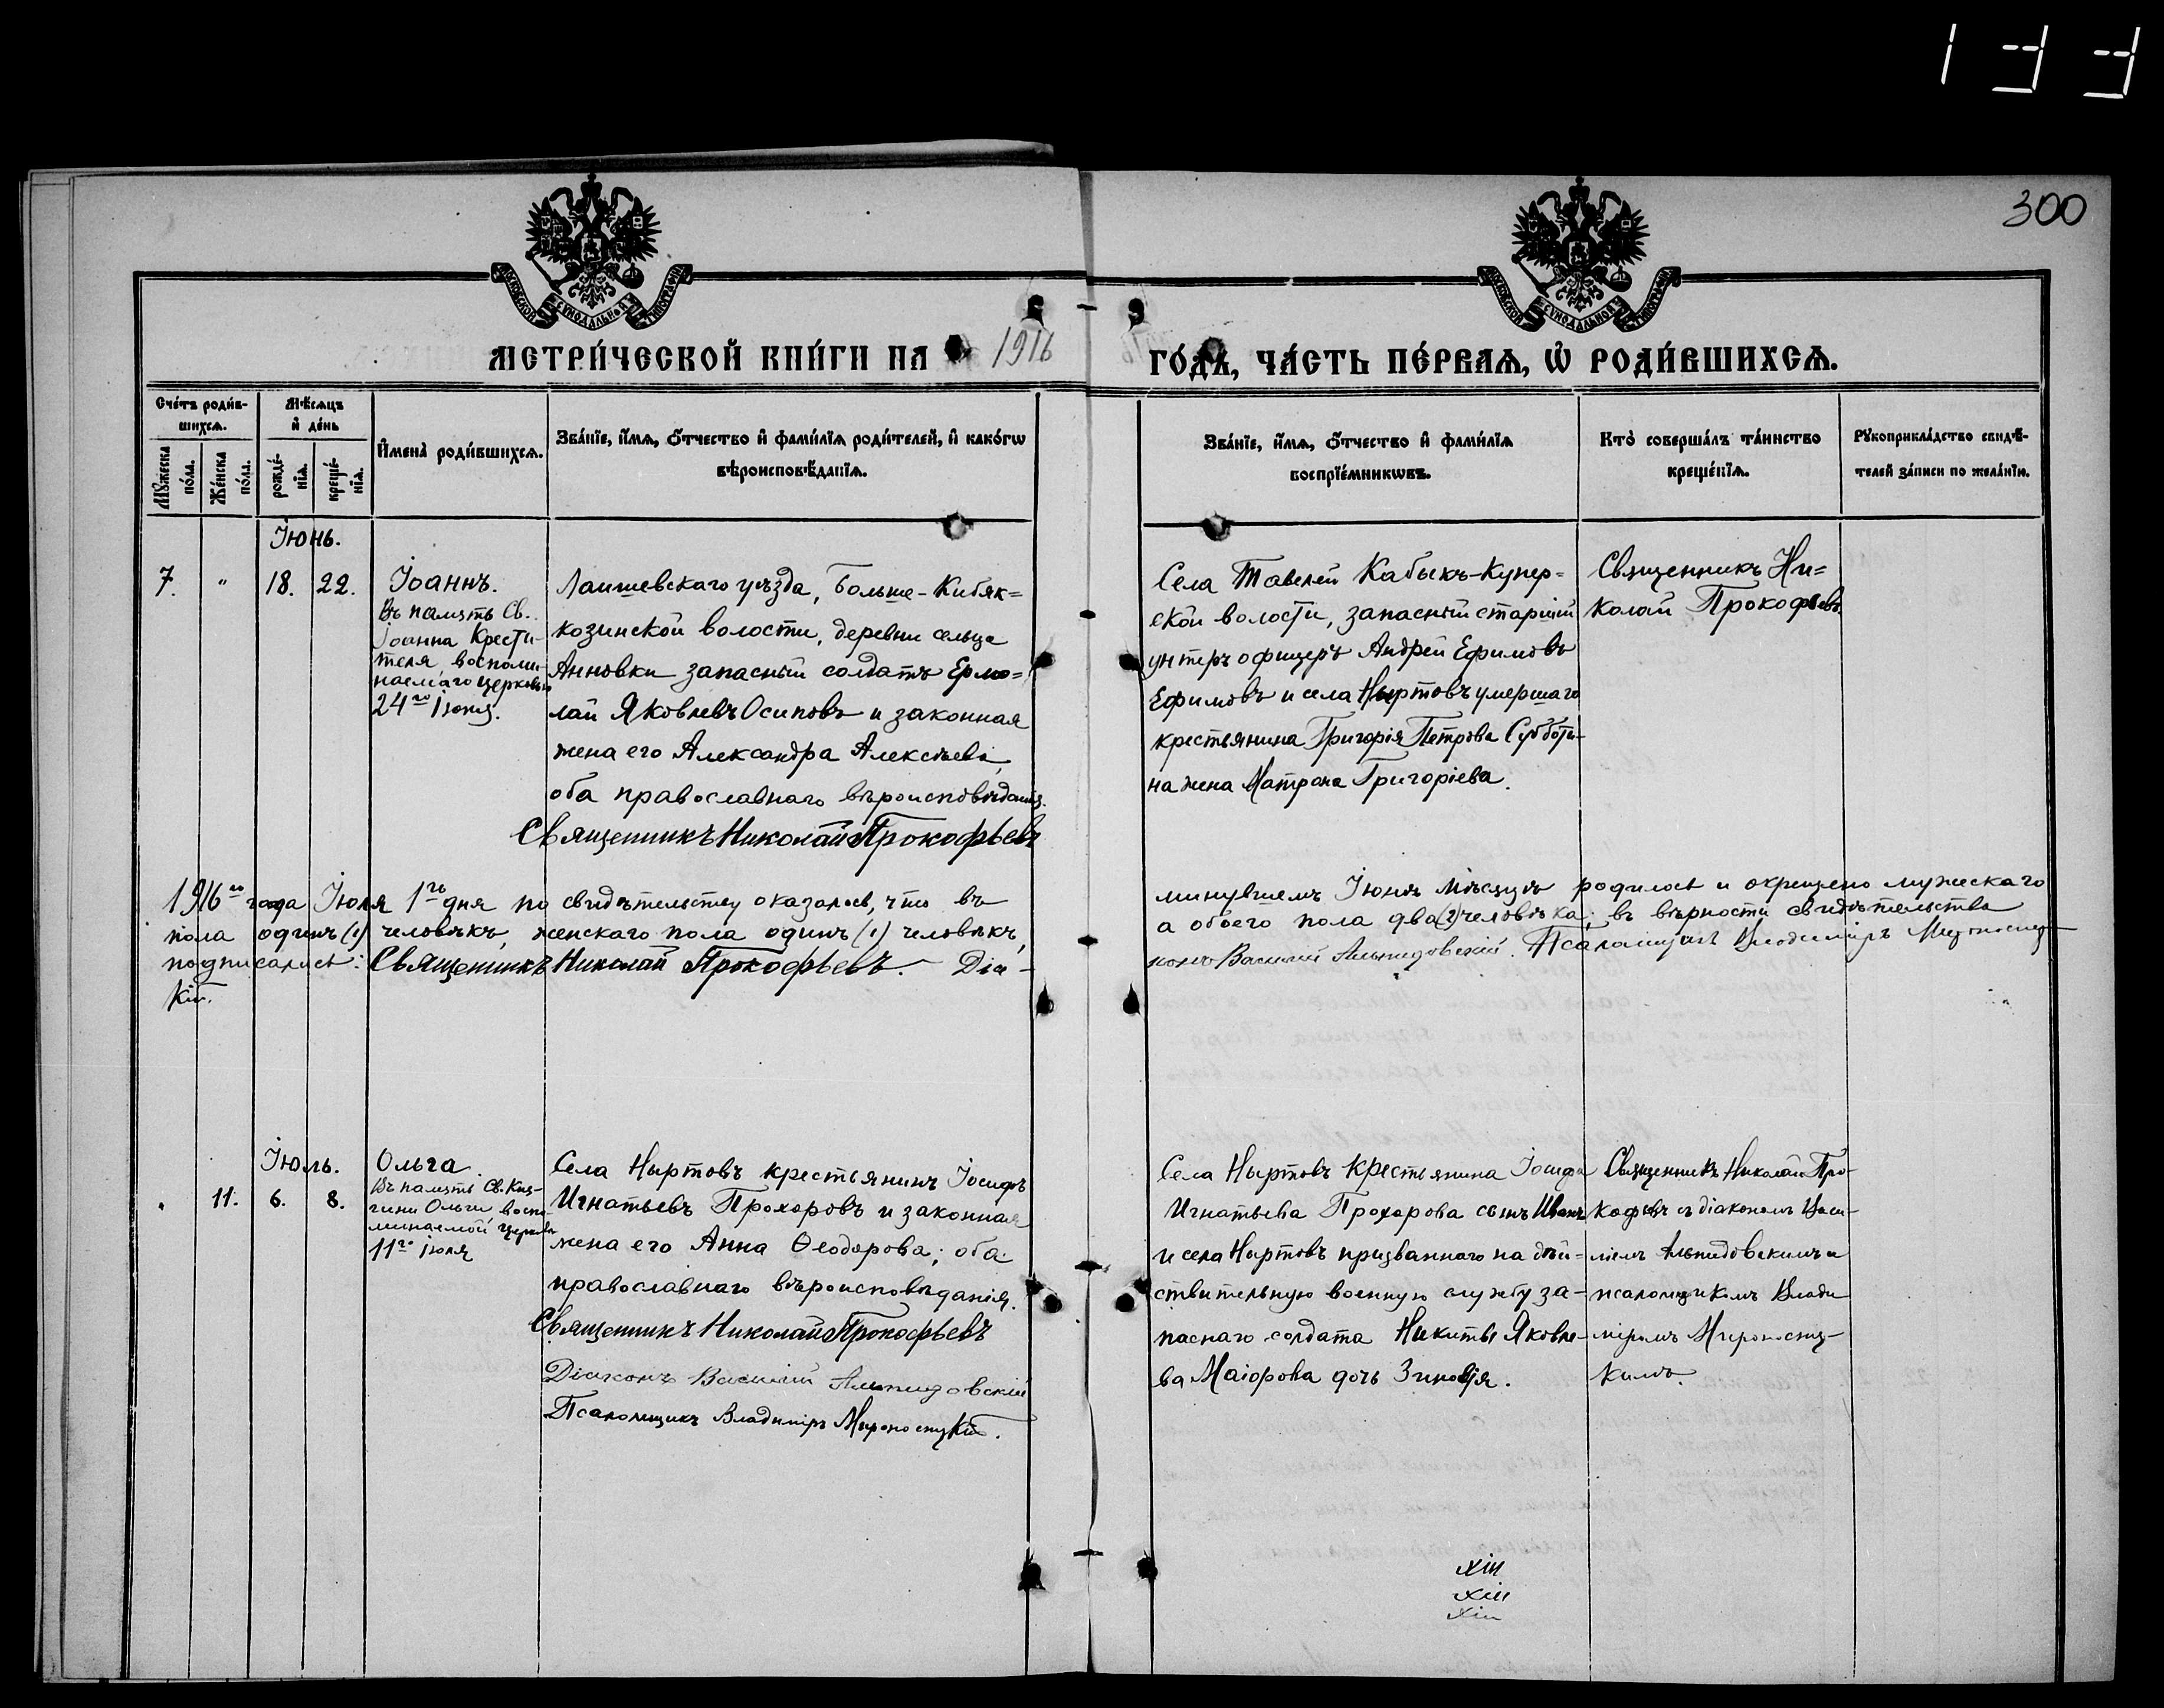 133
300
МОСКОВСКОЙ СУНОДАЛЬНОЙ ТИПОГРАФІИ
МОСКОВСКОЙ СУНОДАЛЬНОЙ ТИПОГРАФІИ
МЕТРИ́ЧЕСКОЙ КНИ́ГИ НА 1916 ГО́ДЪ, ЧА́СТЬ ПЕ́РВАѦ, Ѡ҆ РОДИ́ВШИХСѦ.
Сче́тъ роди́в-
шихсѧ.
Мѣ́сѧцъ
и҆ де́нь
Мꙋ́жеска
по́ла.
Же́нска
по́ла.
рожде́-
нїѧ.
креще́-
нїѧ.
И҆мена̀ роди́вшихсѧ.
Зва́нїе, и҆́мѧ, ѻ҆́тчество и҆ фами́лїѧ роди́телей, и҆ како́гѡ
вѣроисповѣ́данїѧ.
Зва́нїе, и҆́мѧ, ѻ҆́тчество и҆ фами́лїѧ
воспрїе́мникѡвъ.
Кто̀ соверша́лъ та́инство
креще́нїѧ.
Рꙋкоприкла́дство свидѣ́-
телей за́писи по жела́нїю.
Іюнь.
7. " 18. 22.
Іоаннъ.
Въ память Св.
Іоанна Крести-
теля, воспоми-
наемаго церковью
24го іюня.
Лаишевскаго уѣзда, Больше-Кибяк=
козинской волости, деревни сельца
Анновки запасный солдатъ Ермо=
лай Яковлевъ Осиповъ и законная
жена его Александра Алексѣева,
оба православнаго вѣроисповѣданія.
Священникъ Николай Прокофьевъ
Села Тавелей Кабыкъ-Купер=
ской волости, запасный старшій
унтеръ офицеръ Андрей Ефимовъ
Ефимовъ и села Ныртовъ умершаго
крестьянина Григорія Петрова Субботи-
на жена Матрона Григоріева.
Священникъ Ни=
колай Прокофьевъ
1916го года Іюля 1го дня по свидѣтельству оказалось, что въ минувшемъ Іюнѣ мѣсяцѣ родилось и окрещено мужескаго
пола одинъ (1) человѣкъ, женскаго пола одинъ (1) человѣкъ, а обоего пола два (2) человѣка; въ вѣрности свидѣтельства
подписались: Священникъ Николай Прокофьевъ. Діа-
конъ Василій Альпидовскій. Псаломщикъ Владиміръ Мироносиц-
кій.
Іюль.
11. 6. 8.
Ольга
Въ память Св. Кня-
гини Ольги воспо-
минаемой церковью
11го іюля
Села Ныртовъ крестьянинъ Іосифъ
Игнатьевъ Прохоровъ и законная
жена его Анна Ѳеодорова; оба
православнаго вѣроисповѣданія.
Священникъ Николай Прокофьевъ
Діаконъ Василій Альпидовскій
Псаломщикъ Владиміръ Мироносицкій.
Села Ныртовъ крестьянина Іосифа
Игнатьева Прохорова сынъ Иванъ
и села Ныртовъ призваннаго на дѣй-
ствительную военную службу за-
паснаго солдата Никиты Яковле-
ва Маіорова дочь Зиновія.
Священникъ Николай Про-
кофьевъ съ діакономъ Васи-
ліемъ Альпидовскимъ и
псаломщикомъ Влади
міромъ Мироносиц-
кимъ.
xiii
xiii
xiii